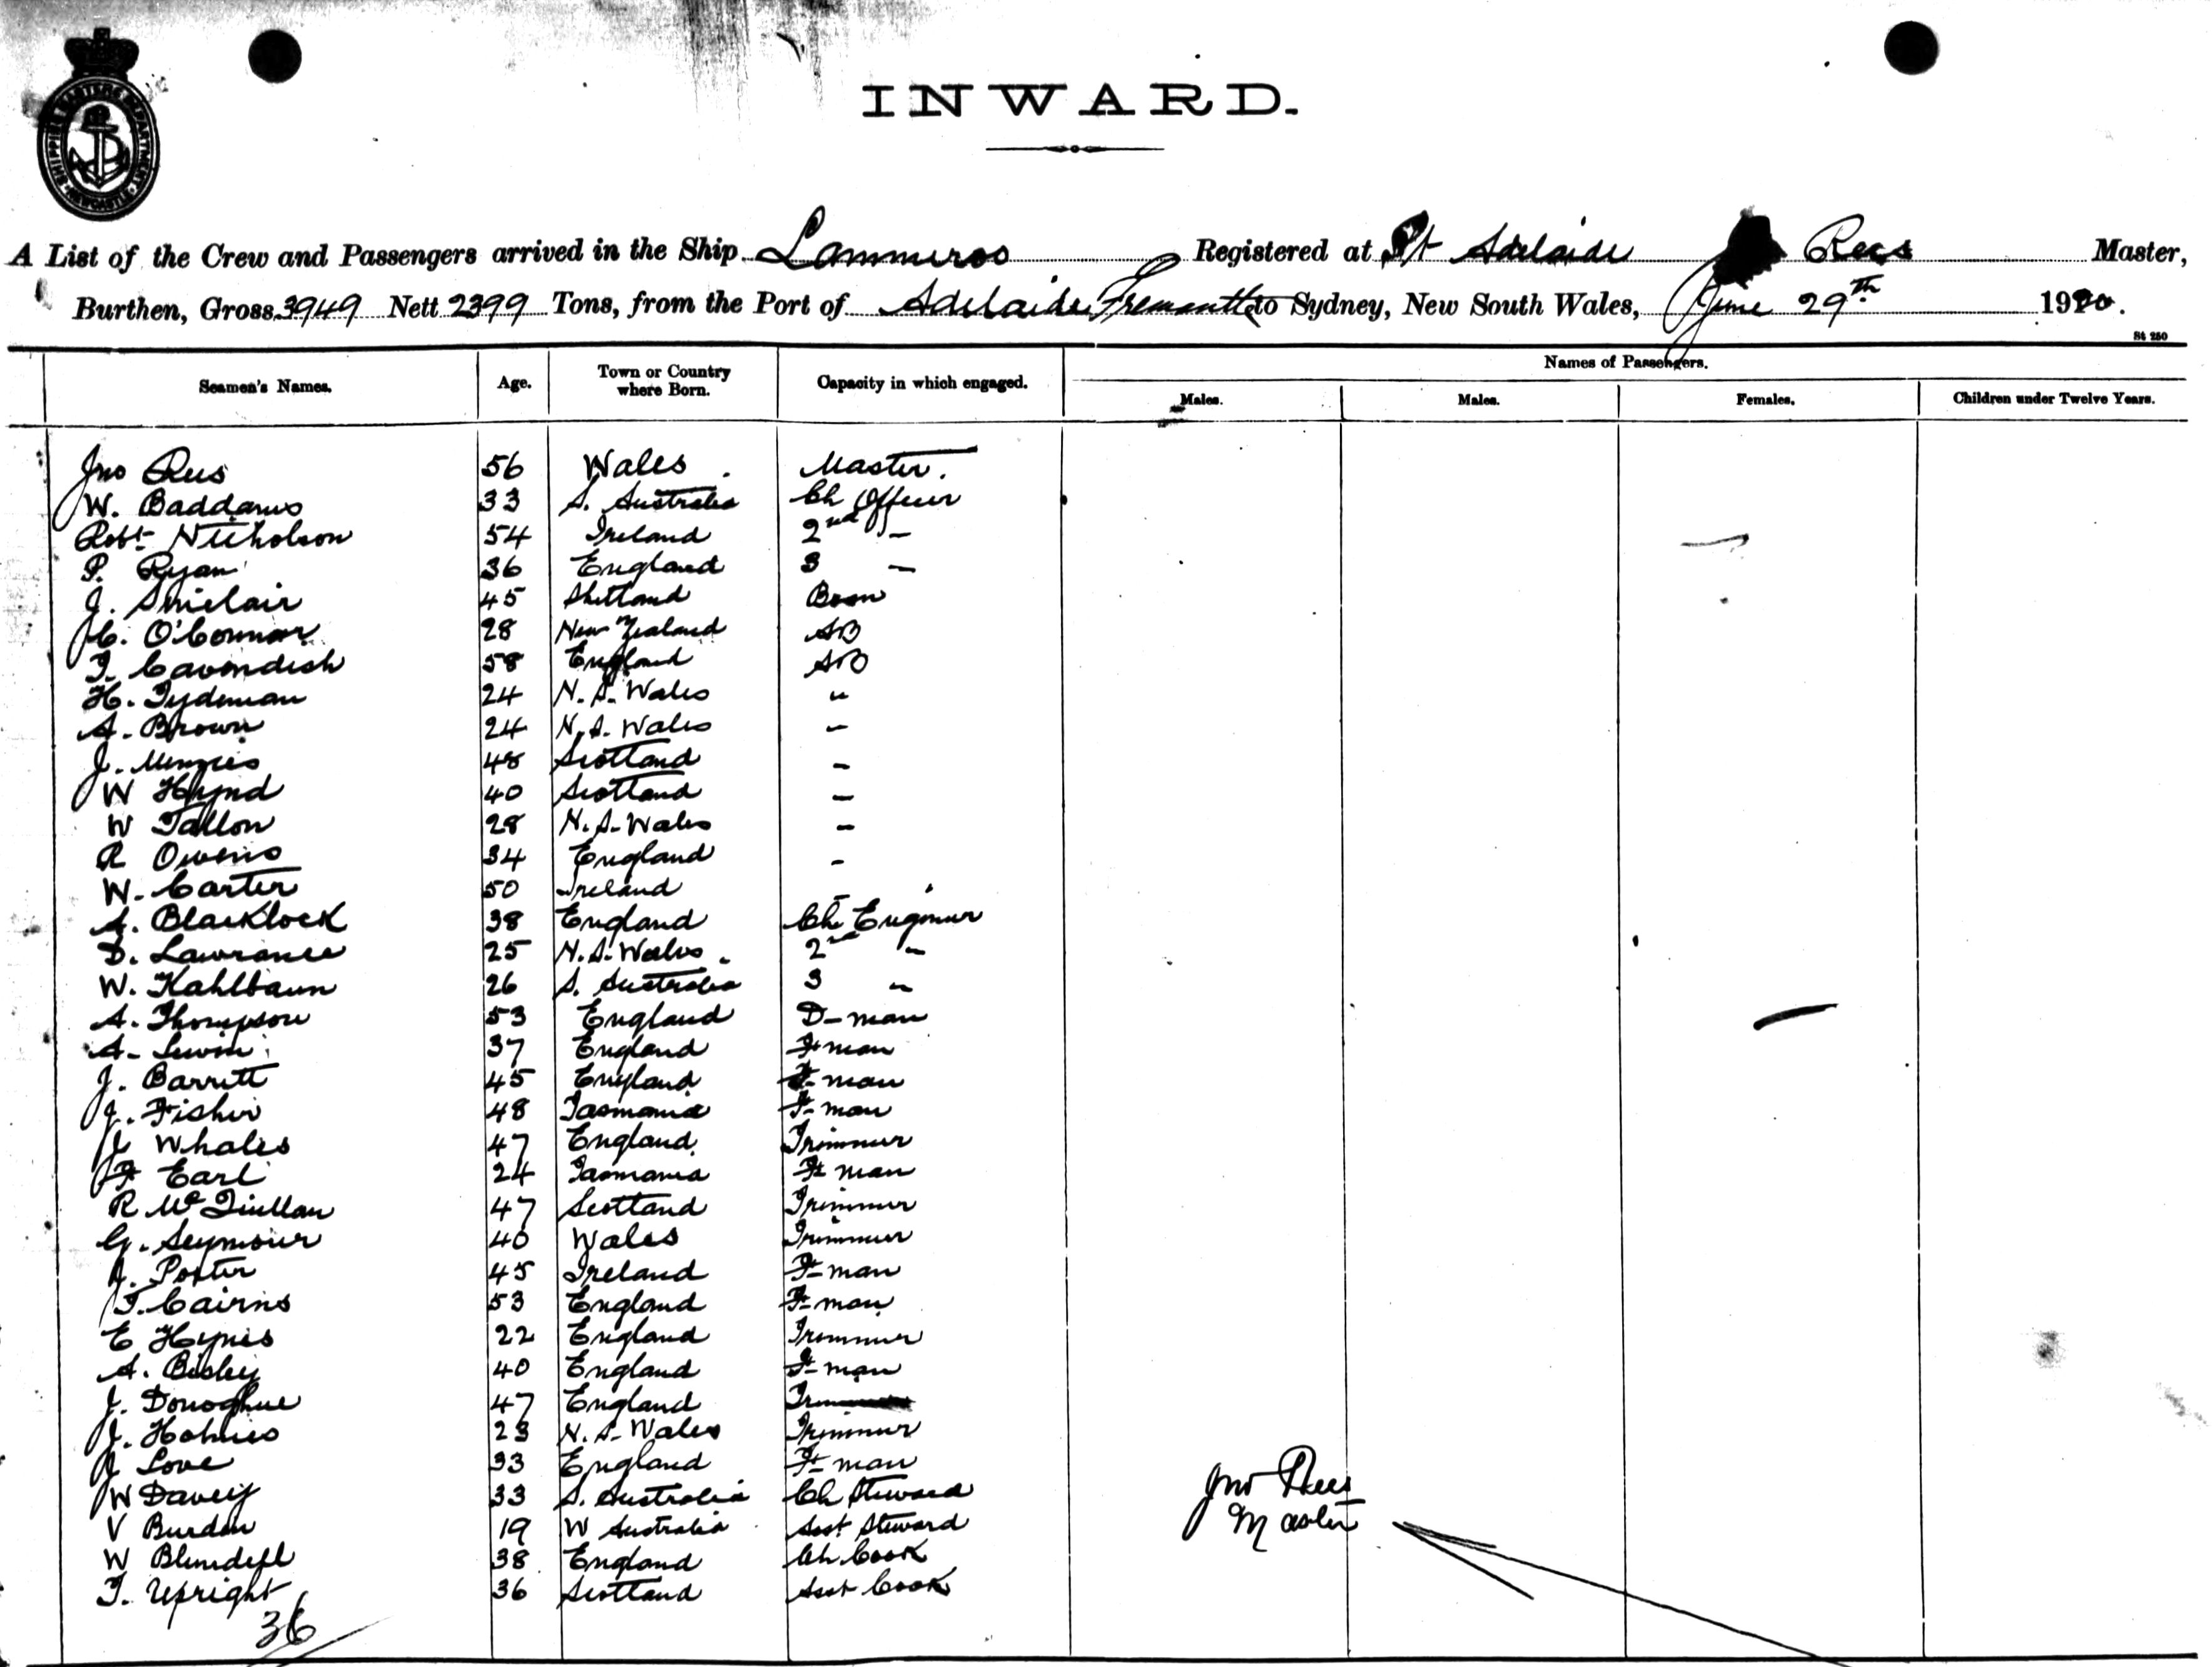 SHIPPING MASTERS DEPARTMENT NEWCASTLE
INWARD.
A List of the Crew and Passengers arrived in the Ship Lammeroo Registered at Pt Adelaide Rees Master,
Burthen, Gross 3949 Nett 2399 Tons, from the Port of Adelaide, Fremantle to Sydney, New South Wales, June 29th 1920.
St 250
Seamen's Names. Age. Town or Country where Born. Capacity in which engaged. Names of Passengers.
Males. Males. Females. Children under Twelve Years.
Jno Rees 56 Wales Master.
W. Baddams 33 S. Australia Ch Officer
Robt Nicholson 54 Ireland 2nd –
P. Ryan 36 England 3 –
J. Sinclair 45 Shetland Bosn
C. O'Connor 28 New Zealand AB
T. Cavendish 58 England AB
H. Tydeman 24 N. S. Wales "
A. Brown 24 N. S. Wales –
J. Menzies 48 Scotland –
W Hynd 40 Scotland –
W Tallon 28 N. S. Wales –
R Owens 34 England –
W. Carter 50 Ireland –
A. Blacklock 38 England Ch Engineer
D. Lawrance 25 N. S. Wales. 2nd "
W. Kahlbaun 26 S. Australia 3 "
A. Thompson 53 England D-man
A. Lewin 37 England F-man
J. Barrett 45 England F-man
J. Fisher 48 Tasmania F-man
J Whales 47 England Trimmer
F Earl 24 Tasmania F-man
R Mc 47 Scotland Trimmer
G. Seymour 40 Wales Trimmer
J. Porter 45 Ireland F-man
T. Cairns 53 England F-man
E Hynes 22 England Trimmer
A. Bisley 40 England F-man
J. Donoghue 47 England
J. Holmes 23 N. S. Wales Trimmer
J Love 33 England F-man
W Davey 33 S. Australia Ch Steward
V Burdon 19 W Australia Asst Steward
W Blundell 38 England Ch Cook
T. Upright 36 Scotland Asst Cook
36
Jno Rees
Master